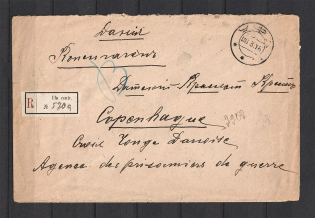 Данія
Копенгагенъ
Датскій Красный Крестъ
Copenhague
Croix Rouge Danoise
Agence des prisonniers de guerre
R